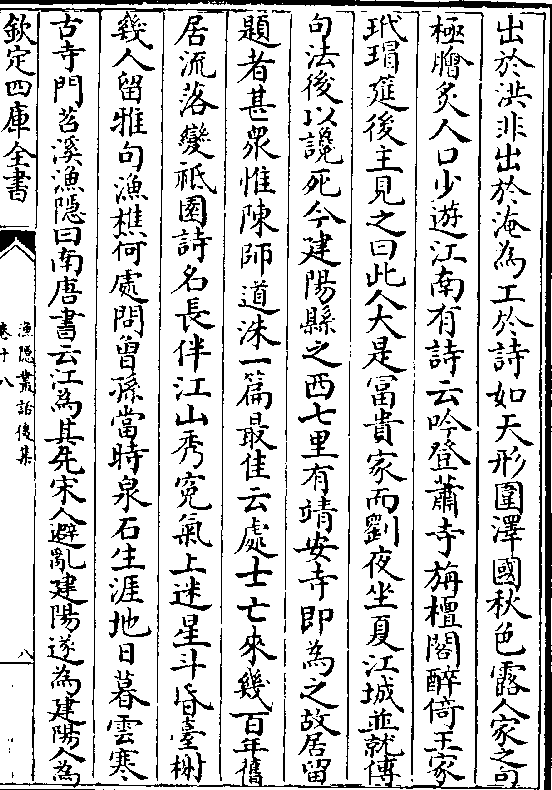 出於洪非出於淹為工於詩如天形圍澤國秋色露人家之句
極膾炙人口少遊江南有詩云吟登蕭寺旃檀閣醉倚王家
玳瑁筵後主見之曰此人大是富貴家而劉夜坐夏江城並就傳
句法後以讒死今建陽縣之西七里有靖安寺即為之故居留
題者甚衆惟陳師道洙一篇最佳云處士亡來幾百年舊
居流落變祗園詩名長伴江山秀寃氣上迷星斗昏臺榭
幾人留雅句漁樵何處問曾孫當時泉石生涯地日暮雲寒
古寺門苕溪漁隱曰南唐書云江為其先宋人避亂建陽遂為建陽人為
欽定四庫全書
漁隱叢話後集
卷十八
八